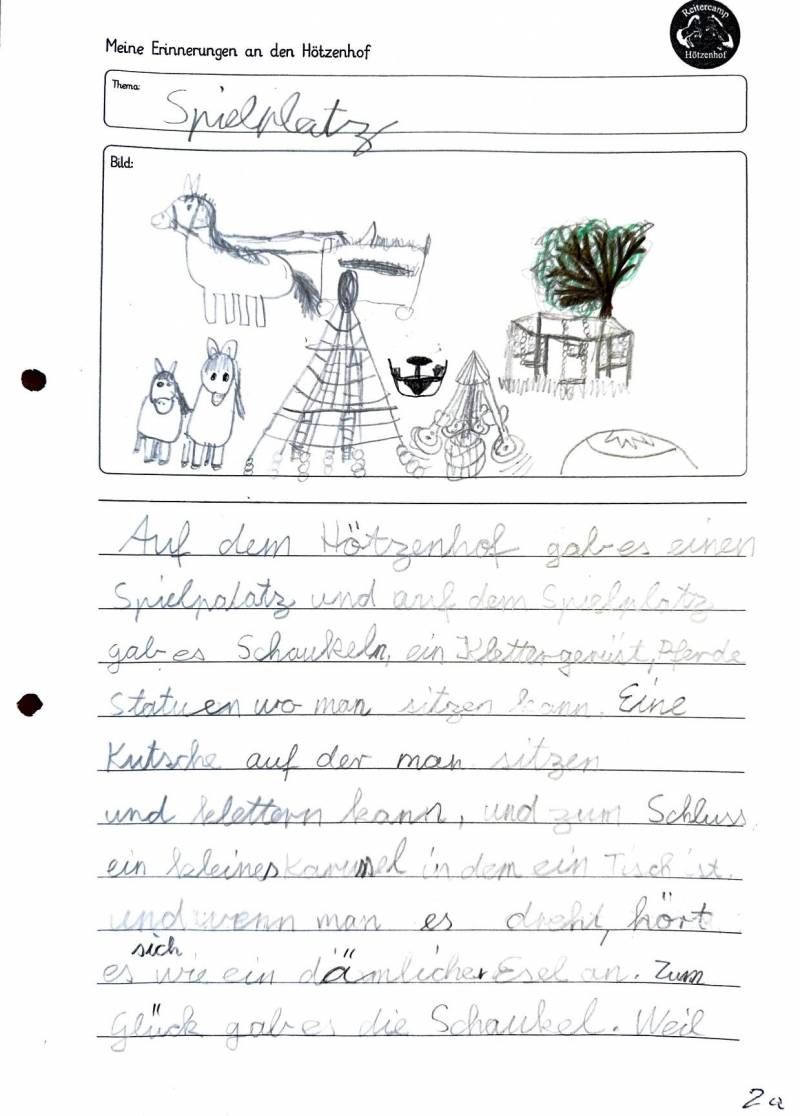 Reitercamp
Hötzenhof
Meine Erinnerungen an den Hötzenhof
Thema:
Spielplatz
Bild:
Auf dem Hötzenhof gab es einen
Spielpalatz und auf dem Spielplatz
gab es Schaukeln, ein Klettergerüst, Pferde
Statuen wo man sitzen kann. Eine
Kutsche auf der man sitzen
und klettern kann, und zum Schluss
ein kleines Karussel in dem ein Tisch ist.
und wenn man es dreht, hört
sich
es wie ein dämlicher Esel an. Zum
Glück gab es die Schaukel. Weil
2a